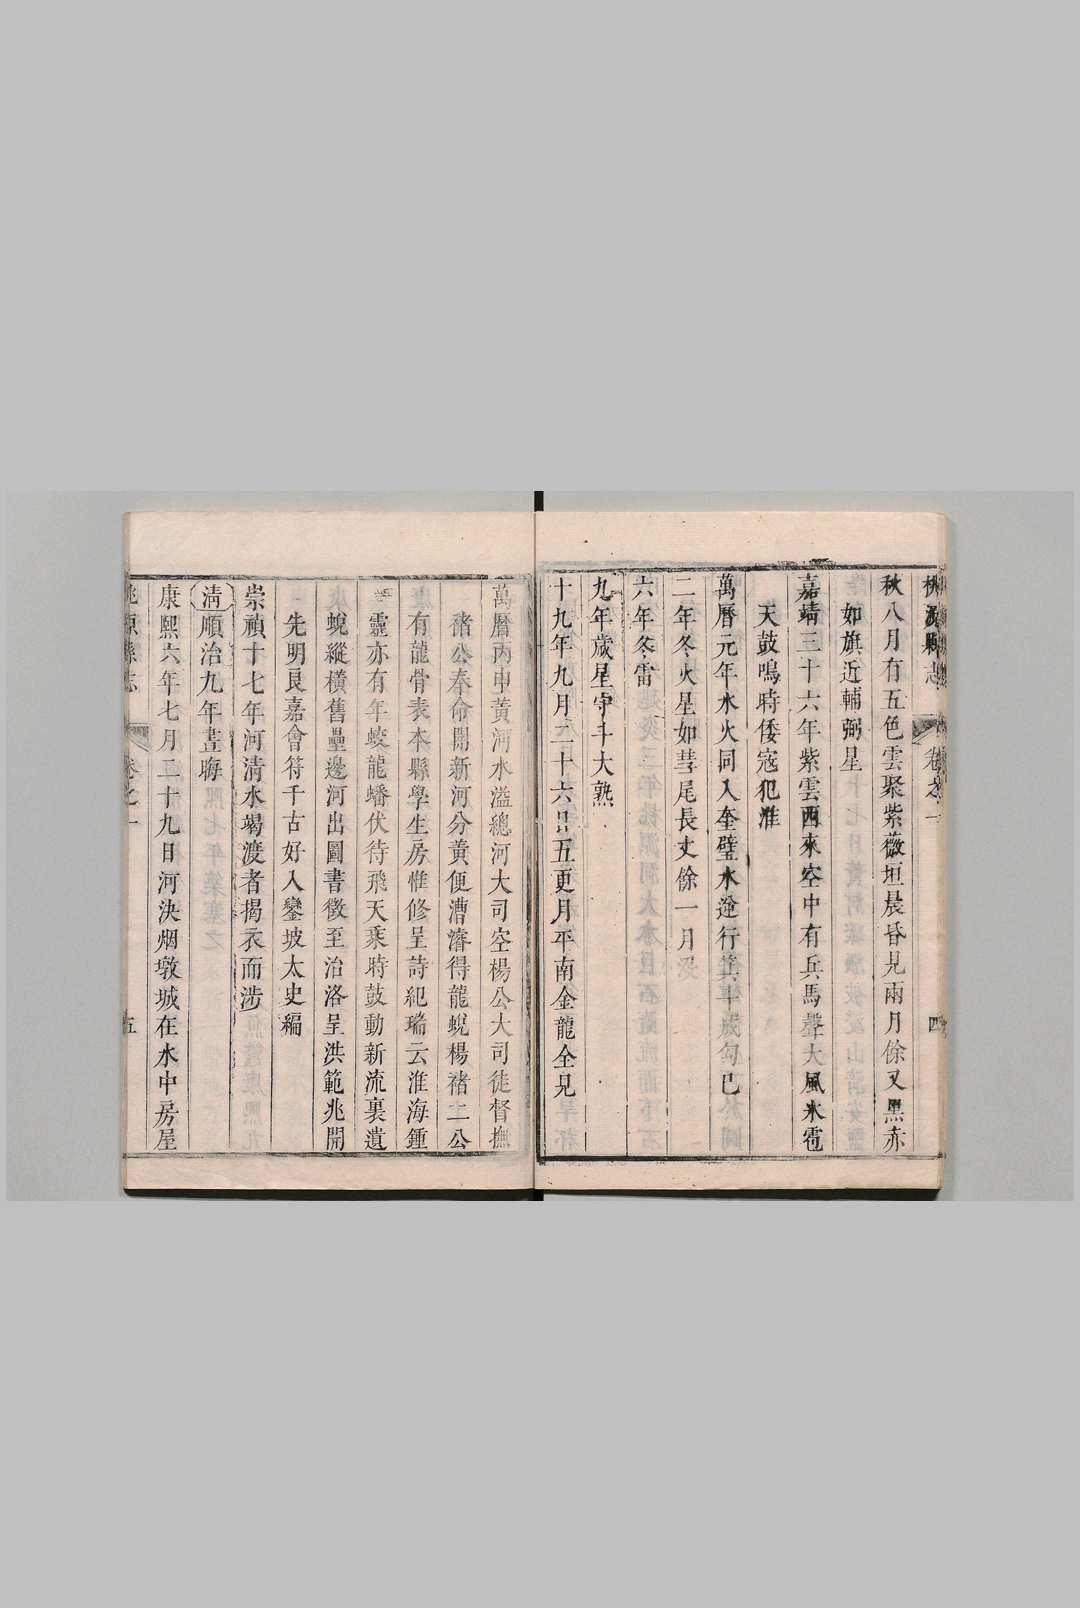 桃源縣志 卷之一 四
秋八月有五色雲聚紫薇垣晨昏見兩月餘又黑赤
如旗近輔弼星
嘉靖三十六年紫雲西來空中有兵馬聲大風氷雹
天鼓鳴時倭寇犯淮
萬曆元年水火同入奎璧水逆行箕半歲勾巳
二年冬火星如彗尾長丈餘一月
六年冬雷
九年歲星孛斗大熟
十九年九月二十六日五更月平南金龍全見
萬曆丙申黃河水溢總河大司空楊公大司徒督撫
褚公奉命開新河分黃便漕濬得龍蛻楊褚二公
有龍骨表本縣學生房惟修呈詩紀瑞云淮海鍾
靈亦有年蛟龍蟠伏待飛天乘時鼓動新流裏遺
蛻縱橫舊壘邊河出圖書徵至治洛呈洪範兆開
先明良嘉會符千古好入鑾坡太史編
崇禎十七年河清水竭渡者揭衣而涉
清順治九年晝晦
康熙六年七月二十九日河決烟墩城在水中房屋
桃源縣志 卷之一 五